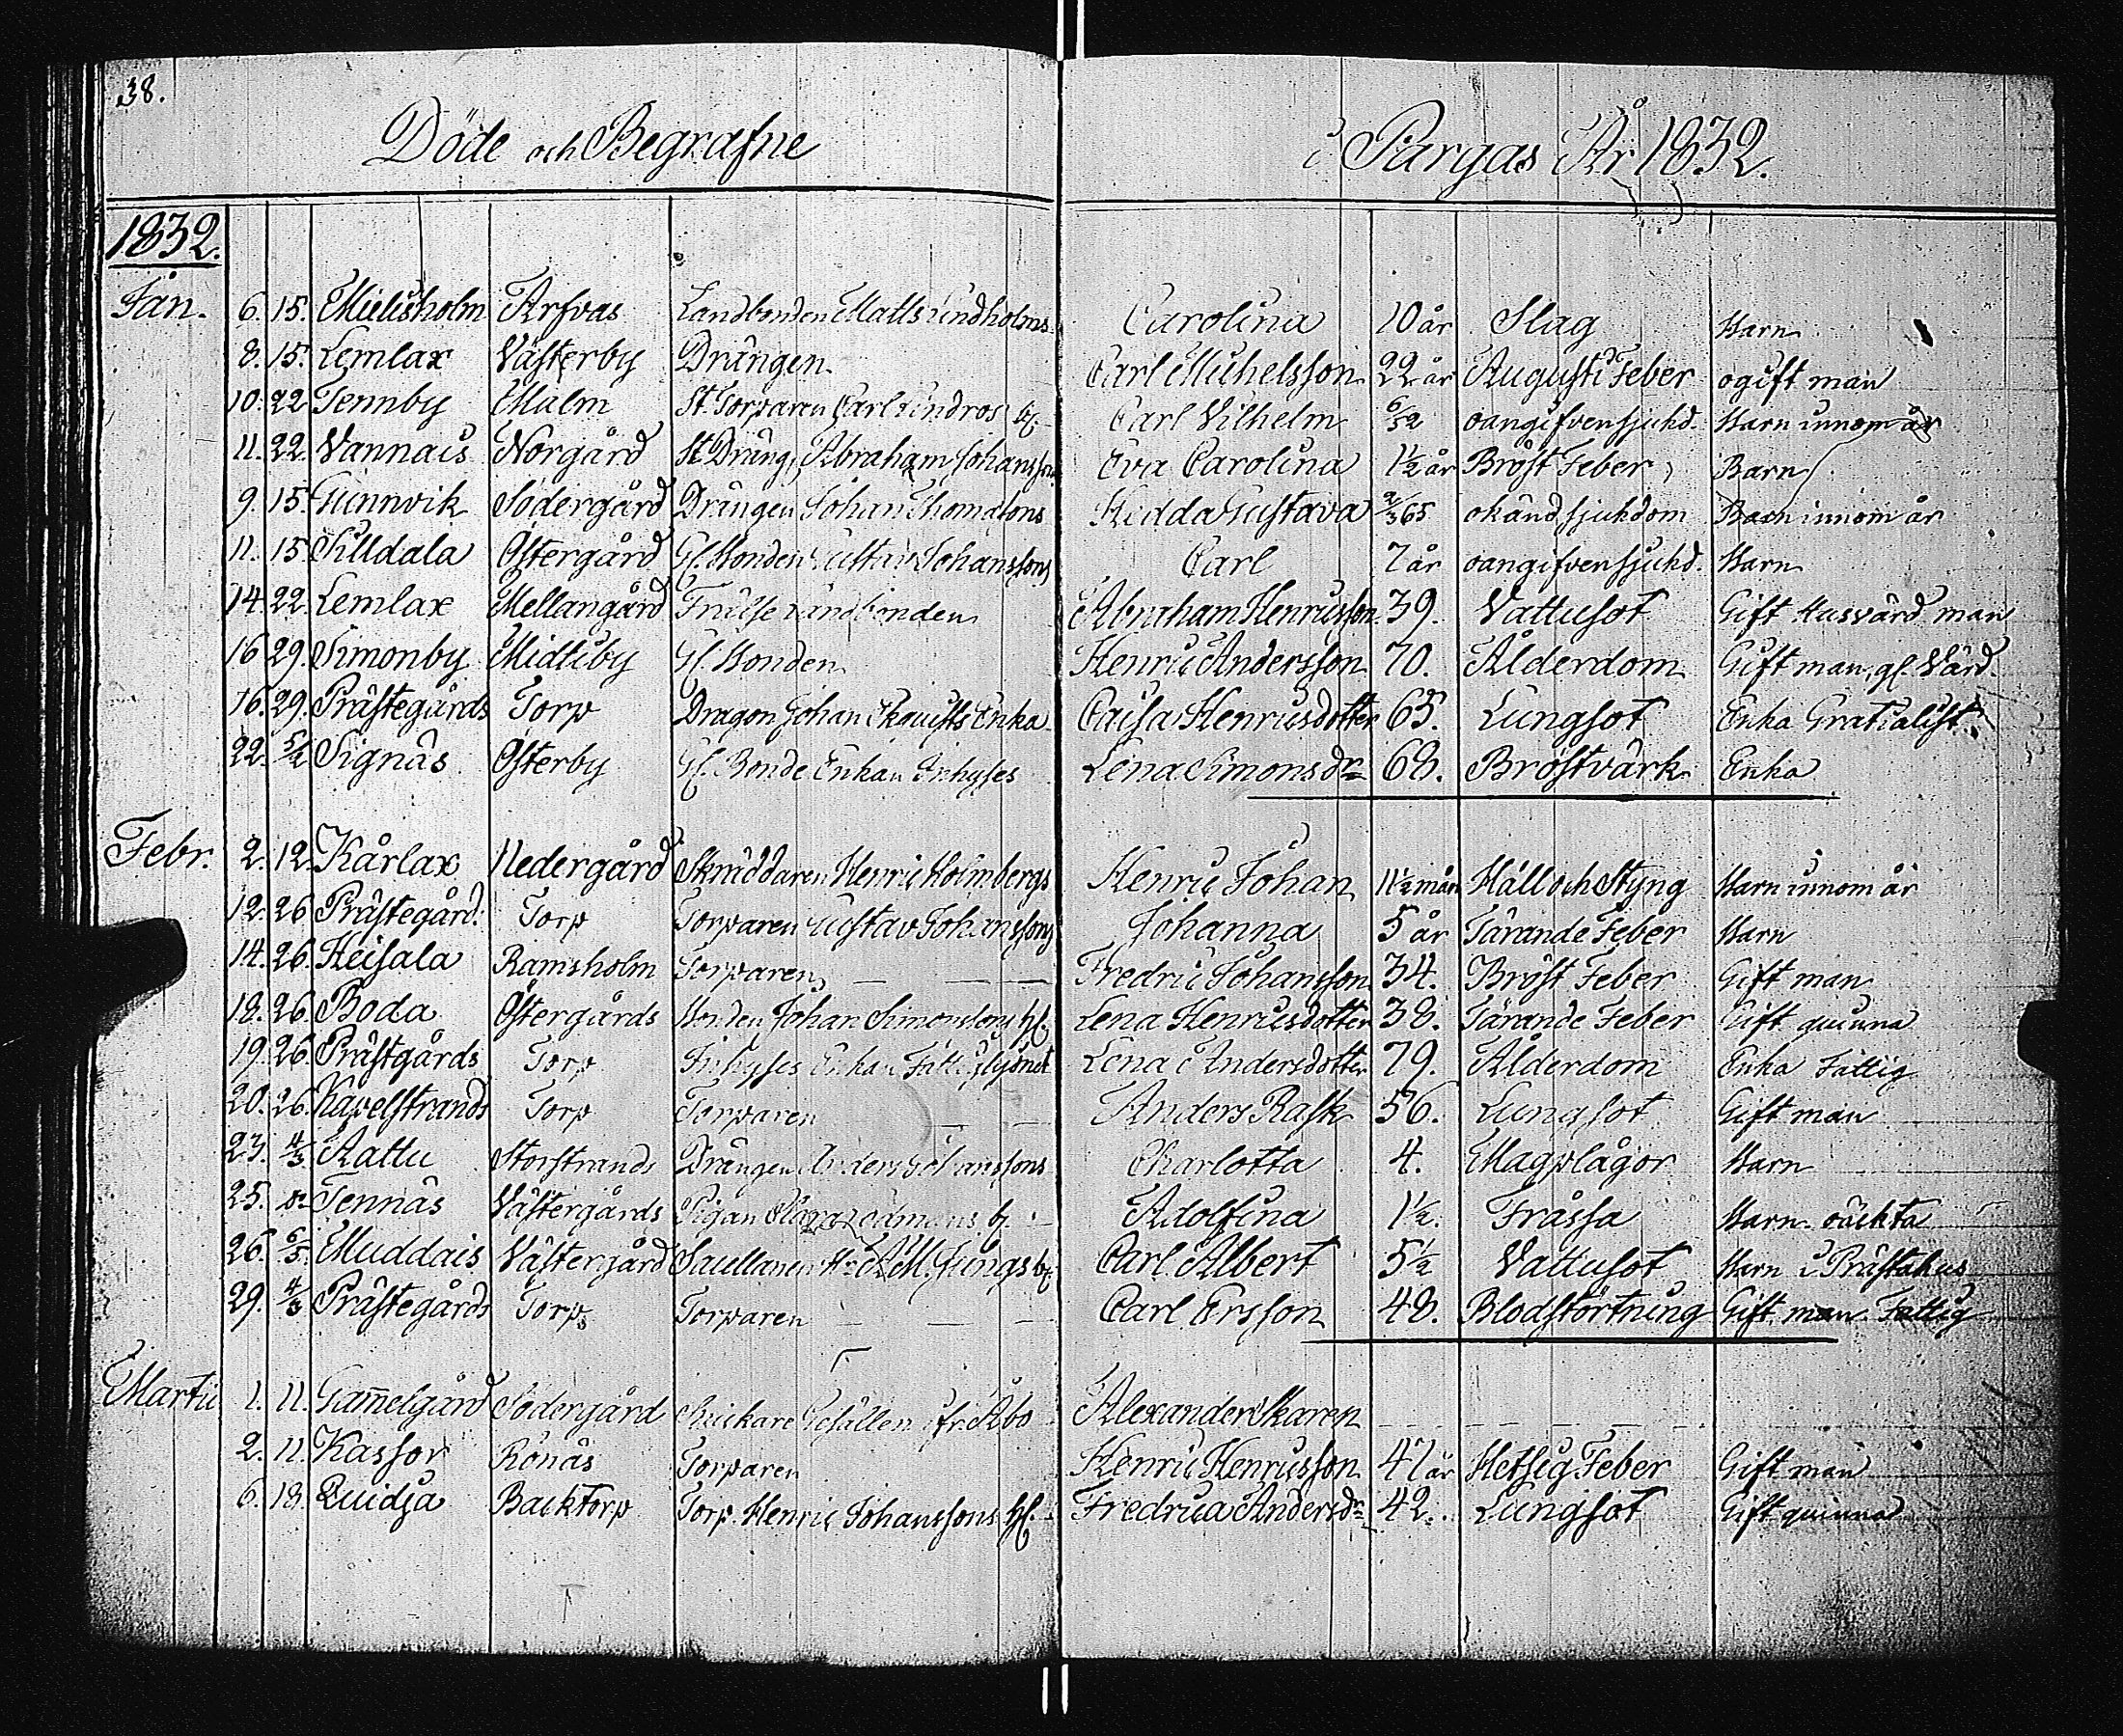 38.
Döde och Begrafne i Pargas År 1832.
1832.
Jan. 6. 15. Mielisholm Arfvas Landbonden Matts Lindholms Carolina 10 år Slag Barn
8. 15. Lemlax Västerby Drängen Carl Michelsson 22 år Augusti Feber ogift man
10. 22 Tennby Malm St. Torparen Carl Lindros b. Carl Vilhelm 6/52 oangifven sjukd. Barn innom år
11. 22 Vannais Norgård St. Dräng. Abraham Johansson Eva Carolina 1½ år Bröst Feber Barn
9. 15. Gunnvik Södergård Drängen Johan Thomasons Hedda Gustava 2/365 okänd sjukdom Barn innom år
11. 15 Silldala Östergård Gl. Bonden Gustav Johanssons Carl 7 år oangifven sjukd. Barn
14. 22. Lemlax Mellangård Frälse Landbonden Abraham Henricsson 39. Vattusot Gift Husvärd man
16 29. Simonby Midtiby Gl. Bonden Henric Andersson 70. Ålderdom Gift man, gl. Värd.
16. 29. Prästegårds Torp Dragon Johan Ekquists Enka Caisa Henricsdotter 65. Lungsot Enka Gratialist.
22. 5/2 Signäs Österby Gl. Bonde Enkan Inhyses Lena Simonsdr 68. Bröstvärk Enka
Febr. 2. 12. Kårlax Nedergård Skräddaren Henric Holmbergs Henric Johan 11½ mån Håll och Styng Barn innom år
12. 26 Prästegård: Torp Torparen Gustav Johanssons Johanna 5 år Tärande Feber Barn
14. 26. Heisala Ramsholm Torparen Fredric Johansson 34. Bröst Feber Gift man
18. 26. Boda Östergårds Bonden Johan Simonssons h. Lena Henricsdotter 38. Tärande Feber Gift quinna
19. 26. Prästgårds Torp Inhyses Enkan Lena Andersdotter 79. Ålderdom Enka Fattig
20. 26. Kapelstrands Torp Torparen Anders Rask 56. Lungsot Gift man
23. 4/3 Attu Storstrands Drängen Anders Johanssons Charlotta 4. Magplågor Barn
25. Tennäs Västergårds Pigan b. Adolfina 1½. Frässa Barn oäckta
26. 6/5. Muddais Västergård A.M. Ljungs b. Carl Albert 5½ Vattusot Barn i Prästahus
29. 4/3 Prästegårds Torp Torparen Carl Ersson 48. Blodstörtning Gift man Fattig
Martii 1. 11. Gam̄elgård Södergård Snickare Gesällen ifr. Åbo Alexander Skaren
2. 11. Kassor Rönäs Torparen Henric Henricsson 47 år Hetsig Feber Gift man
6. 18. Quidja Backtorp Torp. Henric Johanssons h. Fredrica Andersdr 42. Lungsot Gift quinna